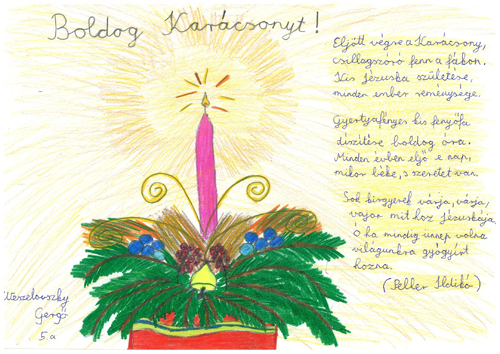 Boldog Karácsonyt!
Eljött végre a Karácsony,
csillagszóró fenn a fákon.
Kis Jézuska születése,
minden ember reménysége.
Gyertyafényes kis fenyőfa
díszítése boldog óra.
Minden évben eljő e nap,
mikor béke, s szeretet van.
Sok kisgyerek várja, várja,
vajon mit hoz Jézuskája,
Ó ha mindig ünnep volna
világunkra gyógyírt
hozna.
(Seller Ildikó)
Wezelovszky
Gergő
5.a